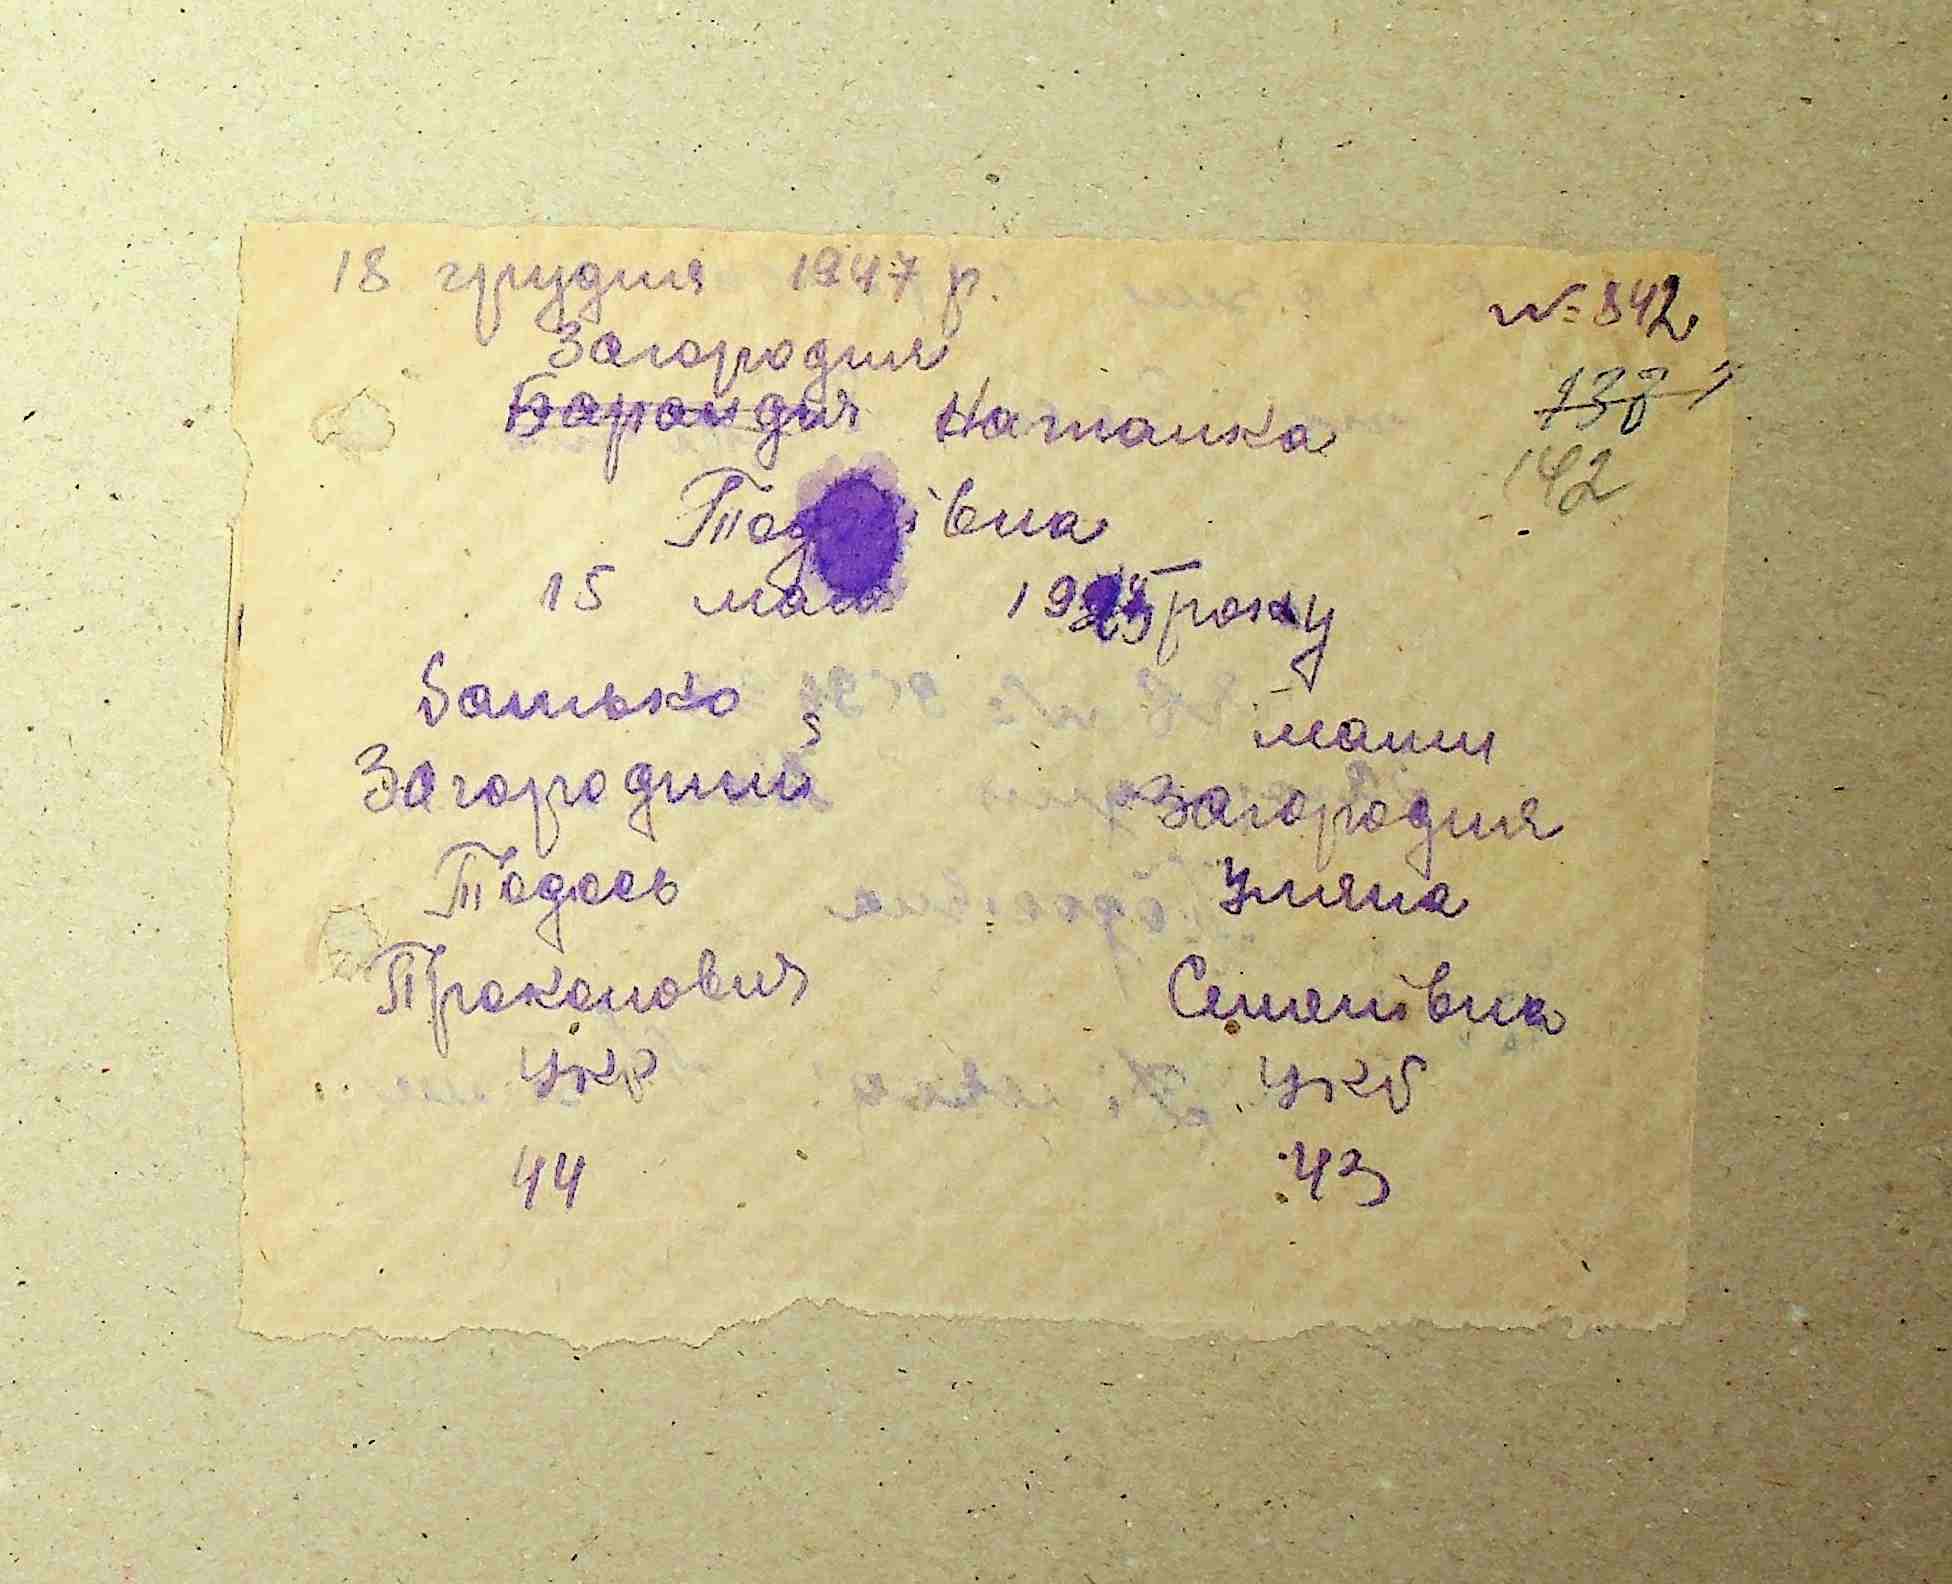 18 грудня 1947 р.
№ 842
Загородня
Барандич Наталка
142
15 мая року
батько
мати
Загородний
Загородня
Тодось
Уляна
Прокопович
Семенівна
укр
укр
44
43